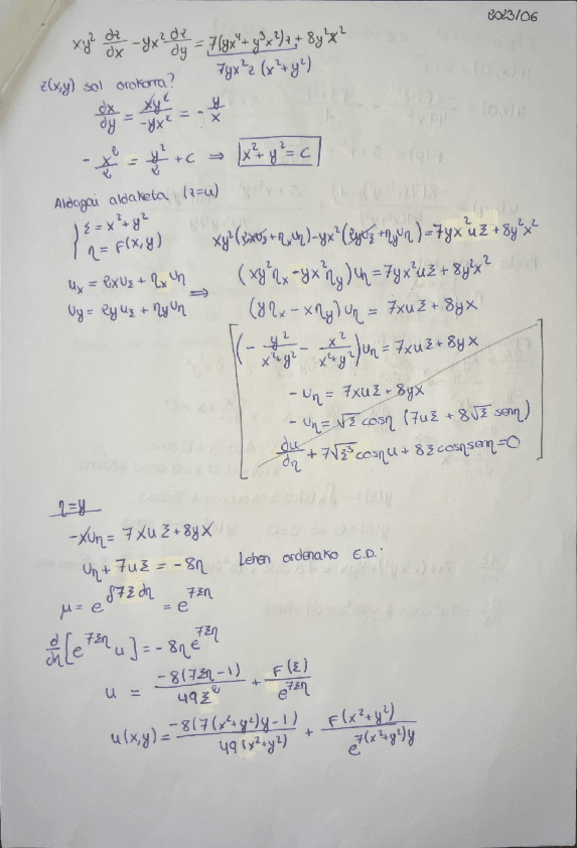 2023/06
xy² ∂z/∂x - yx² ∂z/∂y = 7(yx⁴ + y³x²)z + 8y²x²
7yx²z (x²+y²)
z(x,y) sol orokorra?
dx/dy = xy²/-yx² = - y/x
- x²/2 = y²/2 + C ⇒ x² + y² = C
Aldagai aldaketa (z=u)
{ ξ = x² + y²
η = F(x,y)
xy²(2xuξ + ηx uη) - yx²(2yuξ + ηy uη) = 7yx²uξ + 8y²x²
ux = 2xuξ + ηx uη
uy = 2yuξ + ηy uη ⇒
(xy²ηx - yx²ηy) uη = 7yx²uξ + 8y²x²
(yηx - xηy) uη = 7xuξ + 8yx
(- y²/x²+y² - x²/x²+y²) uη = 7xuξ + 8yx
- uη = 7xuξ + 8yx
- uη = √ξ cosη (7uξ + 8√ξ senη)
du/dη + 7√ξ³ cosηu + 8ξ cosηsenη = 0
η = y
-xuη = 7xuξ + 8yx
uη + 7uξ = -8η Lehen ordenako E.D.:
μ = e^∫7ξdη = e^7ξη
d/dη [e^7ξη u] = -8ηe^7ξη
u = -8(7ξη-1)/49ξ² + F(ξ)/e^7ξη
u(x,y) = -8(7(x²+y²)y-1)/49(x²+y²) + F(x²+y²)/e^7(x²+y²)y